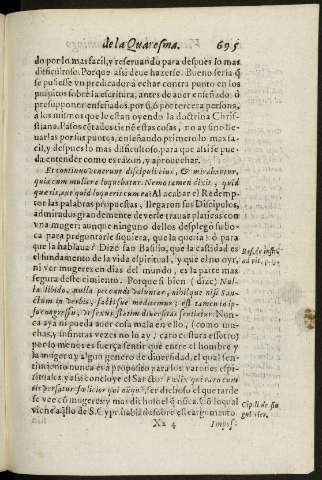 de la Quaresma. 695
do por lo mas facil, y reseruando para despues lo mas
dificultoso. Porque assi deue hazerse. Bueno seria q̃
se pusiesse vn predicador a echar contra punto en los
pulpitos sobre la escritura, antes de auer enseñado ò
presupponer enseñados, por si, ò por tercera persona,
a los mismos que le estan oyendo la doctrina Chris-
tiana. Passos contados tiene estas cosas, no ay sino lle-
uarlas por sus puntos, enseñando primero lo mas fa-
cil, y despues lo mas dificultoso, para que assi se pue-
da entender como es razon, y aprouechar.
Et continuo venerunt discipuli eius, & mirabantur,
quia cum muliere loquebatur. Nemo tamen dixit, quid
quæris, aut quid loqueris cum ea? Al acabar el Redemp-
tor las palabras propuestas, llegaron sus Discipulos,
admirados grandemente de verle trauar platicas con
vna muger: aunque ninguno dellos desplegò su bo-
ca para preguntarle siquiera, que la queria? ò para
que la hablaua? Dize san Basilio, que la castidad es
el fundamento de la vida espiritual, y que el no oyr,
ni ver mugeres en dias del mundo, es la parte mas
segura deste cimiento. Porque si bien (dize) Nul-
la libido, nulla peccandi voluntas, nihilque nisi San-
ctum in verbis, factisque meditemur: est tamen in ip-
so congressu, & sexus statim diuersitas sentiatur. Nun-
ca aya ni pueda auer cosa mala en ello, (como mu-
chas, y infinitas vezes no lo ay) caro cuesta essotro)
por lo menos es fuerça sentir que entre el hombre y
la muger ay algun genero de diuersidad, el qual sen-
timiento nunca es a proposito para los varones espi-
rituales. y assi concluye el Sancto: Fœlix qui raro cum
his versatur, fœlicior qui nũquã. Es dichoso el que tarde
se vee cõ mugeres y mas dichoso el q̃ nũca. Cõ lo qual
viene a q̃llo de S. Cypr. hablãdo sobre este argumẽto
Xx 4 Impos-
Bas. de instit.
ad vit.
Cip. li. de sin
gul. cler.